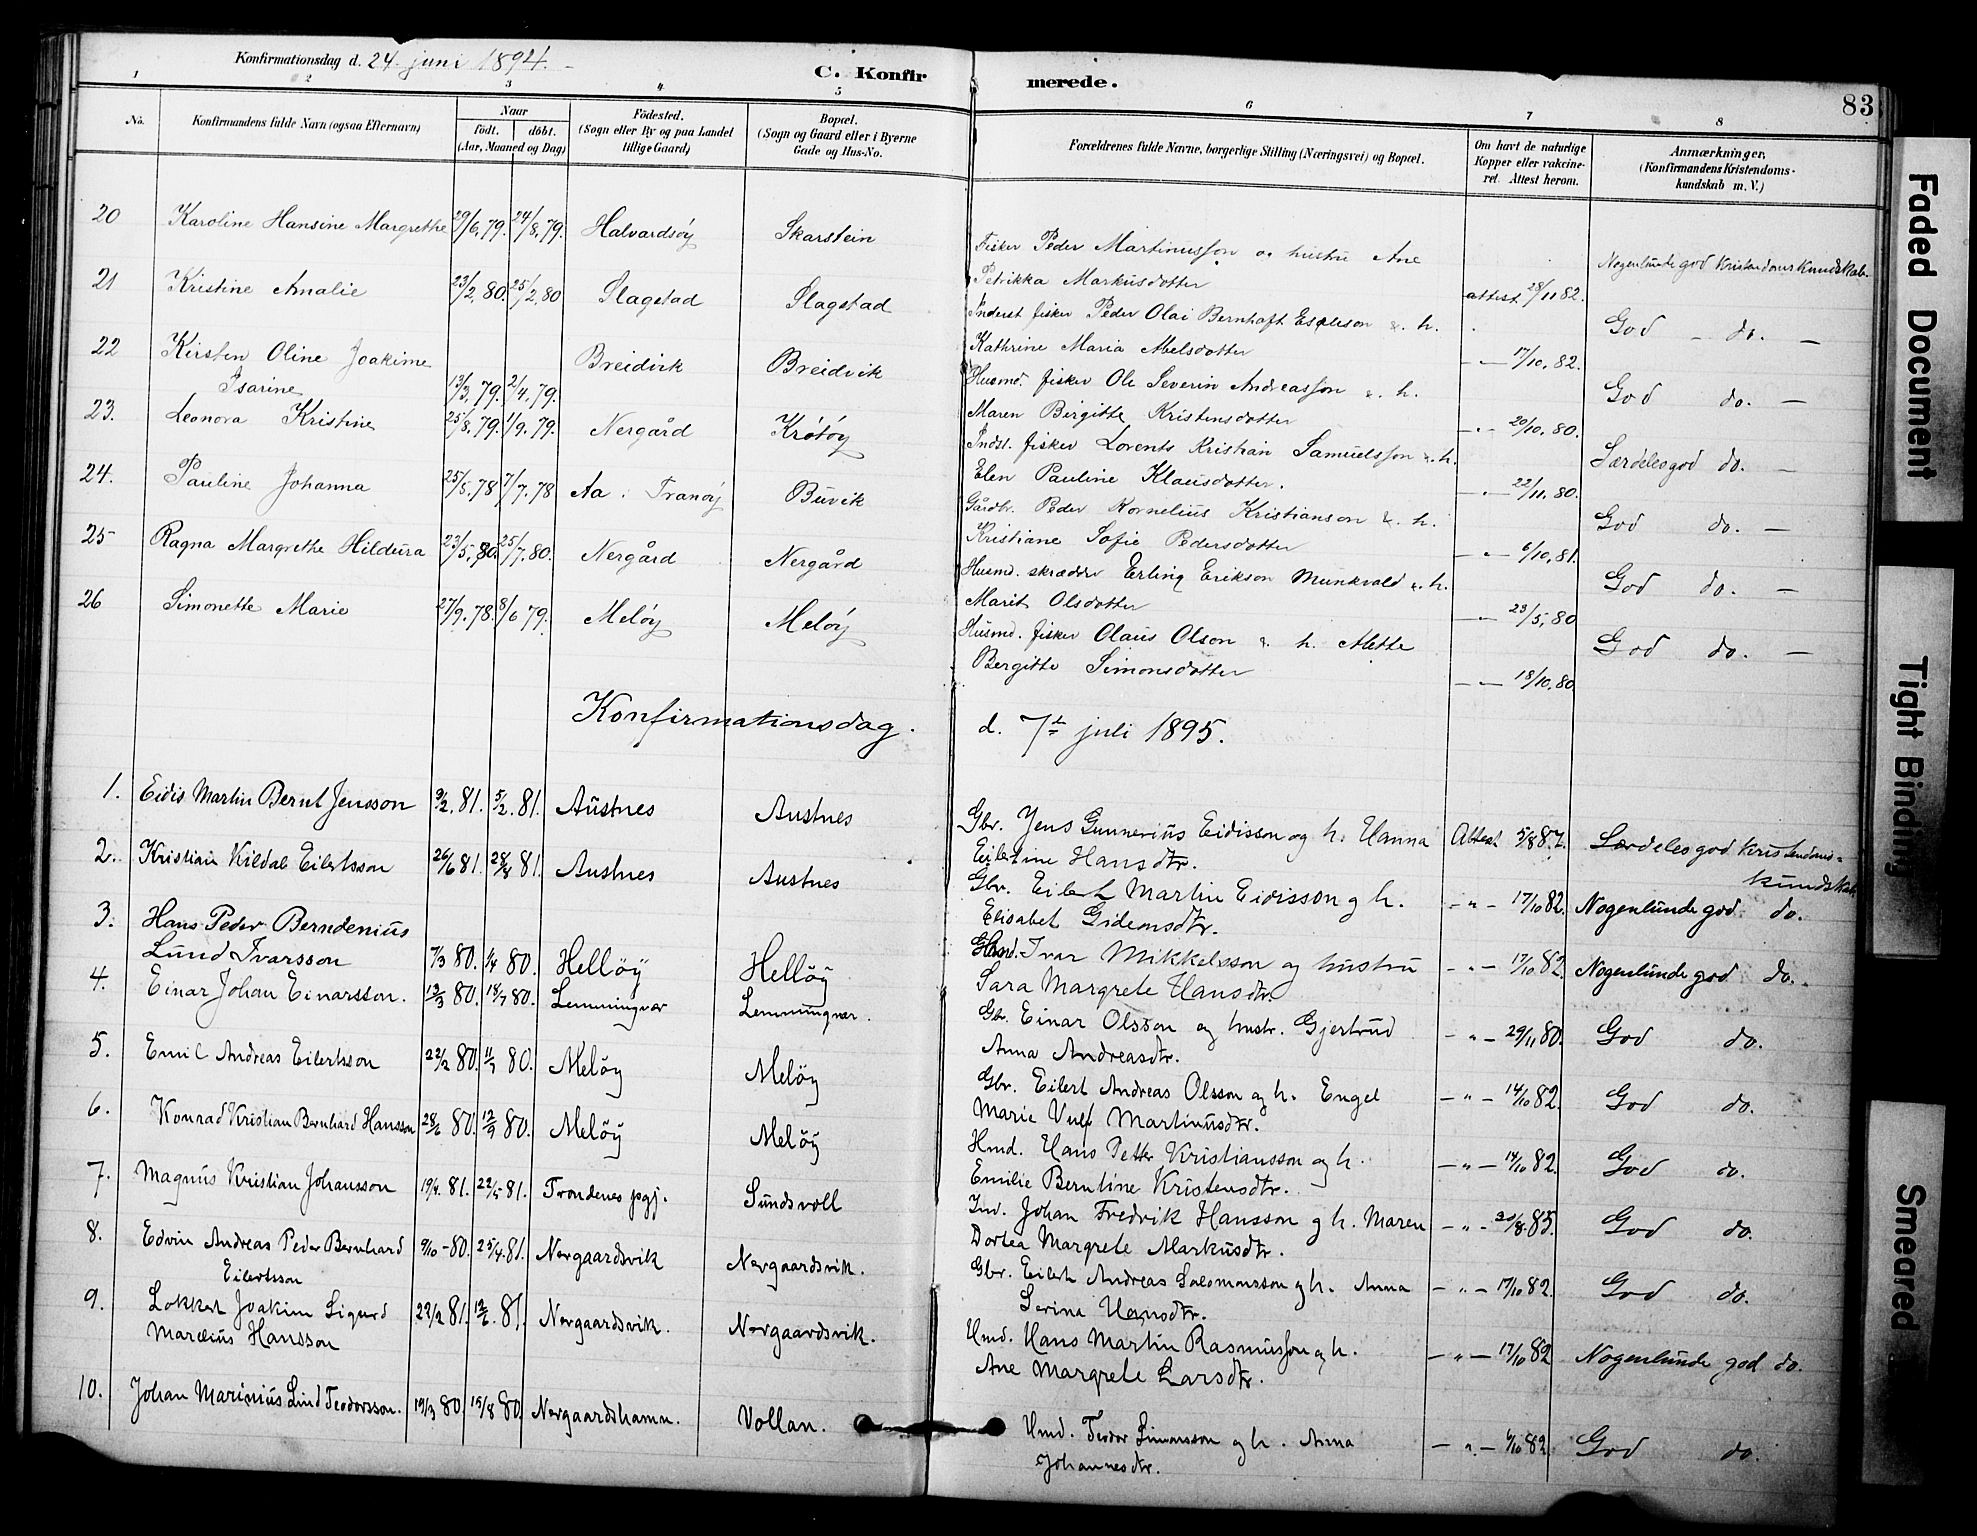 Konfirmationsdag d. 24. juni 1894.
C. Konfir
merede.
83
1 2 3 4 5 6 7 8
No.
Konfirmandens fulde Navn (ogsaa Efternavn)
Naar
födt. döbt.
(Aar, Maaned og Dag)
Födested.
(Sogn eller By og paa Landet
tillige Gaard)
Bopæl.
(Sogn og Gaard eller i Byerne
Gade og Hus-No.
Forældrenes fulde Navne, borgerlige Stilling (Næringsvei) og Bopæl.
Om havt de naturlige
Kopper eller vakcine-
ret. Attest herom.
Anmærkninger.
(Konfirmandens Kristendoms-
kundskab m. V.)
20 Karoline Hansine Margrethe 29/6.79. 24/8.79. Halvardsöy Skarstein
Fisker Peder Martinussön og hustru Ane
Petrikka Markusdotter attest 28/11 82. Nogenlunde god Kristendomskundskab.
21 Kristine Amalie 23/2.80. 25/2.80 Slagstad Slagstad
Inderst fisker Peder Olai Bernhoft Eseleson &. h.
Kathrine Maria Abelsdotter — 17/10.82. God — do. —
22 Kirsten Oline Joakime
Isarine 13/3.79. 2/4.79. Breidvik Breidvik
Husmd. fisker Ole Severin Andreasson &. h.
Maren Birgitte Kristensdotter — 20/10.80. God do. —
23. Leonora Kristine 25/8.79. 1/9.79. Nergård Krötöy
Indst. fisker Lorents Kristian Samuelsson &. h.
Elen Pauline Klausdotter. — 22/11.80. Særdeles god do. —
24. Pauline Johanna 25/5.78 7/7.78 Aa i Tranöy Buvik
Gårdbr. Peder Kornelius Kristianson &. h.
Kristiane Sofie Pedersdotter — " — 6/10.81. God do. —
25 Ragna Margrethe Hildeura 23/5.80. 25/7.80. Nergård Nergård
Husmd. skrædder Erling Erikson Munkvold &. h.
Marit Olsdotter — 23/5.80 God do. —
26 Simonette Marie 27/9.78. 8/6 79. Melöy Melöy
Husmd. fisker Olaus Olson &. h. Alette
Bergitte Simonsdotter — 18/10.80. God do. —
Konfirmationsdag. d. 7de juli 1895.
1. Eidis Martin Bernt Jensson 3/2.81. 5/2.81. Austnes Austnes
Gbr. Jens Gunnerius Eidisson og h. Hanna
Eilertine Hansdtr. Attest 5/8 87. Særdeles god Kristendoms-
kundskab.
2. Kristian Kildal Eilertsson 26/6 81. 28/8 81. Austnes Austnes
Gbr. Eilert Martin Eidisson og h.
Elisabet Gideonsdtr. — " — 17/10 82. Nogenlunde god do.
3. Hans Peder Berndenius
Lund Ivarsson 7/3 80. 1/4 80. Hellöy Hellöy
Hmd. Ivar Mikkelsson og hustru
Sara Margrete Hansdtr. — " — 17/10 82. Nogenlunde god do.
4. Einar Johan Einarsson. 12/3 80. 18/7 80. Lemmingvær Lemmingvær.
Gbr. Einar Olsson og hustr. Gjertrud
Anna Andreasdtr. — " — 29/11 80. God do.
5. Emil Andreas Eilertsson 22/2 80. 11/7 80. Melöy Melöy
Gbr. Eilert Andreas Olsson og h. Engel
Marie Vulf Martinusdtr. — " — 14/10 82. God do.
6. Konrad Kristian Bernhard Hansson 28/6 80. 12/9 80. Melöy Melöy
Hmd. Hans Petter Kristiansson og h.
Emilie Berntine Kristensdtr. — " — 14/10 82. God do.
7. Magnus Kristian Johansson 19/4. 81. 22/5 81. Trondenes pgj. Sundsvoll
Ind. Johan Fredrik Hansson og h. Maren
Dortea Margrete Markusdtr. — " — 30/8. 85. God do.
8. Edvin Andreas Peder Bernhard
Eilertsson 9/10 - 80. 25/4. 81. Nergaardsvik Nergaardsvik.
Gbr. Eilert Andreas Salomonsson og h. Anna
Serina Hansdtr. — " — 17/10 82. God do.
9. Lokkert Joakim Sigurd
Marelius Hansson 22/2 81. 12/6. 81. Nergaardsvik. Nergaardsvik.
Hmd. Hans Martin Rasmusson og h.
Ane Margrete Larsdtr. — " — 17/10 82 Nogenlunde god do.
10. Johan Marinius Lind Teodorsson. 19/3 80. 15/8 80. Nergaardshamn. Vollan.
Hmd. Teodor Simonsson og h. Anna
Johannesdtr. — " — 6/10 82. God do.
Faded Document
Tight Binding
Smeared